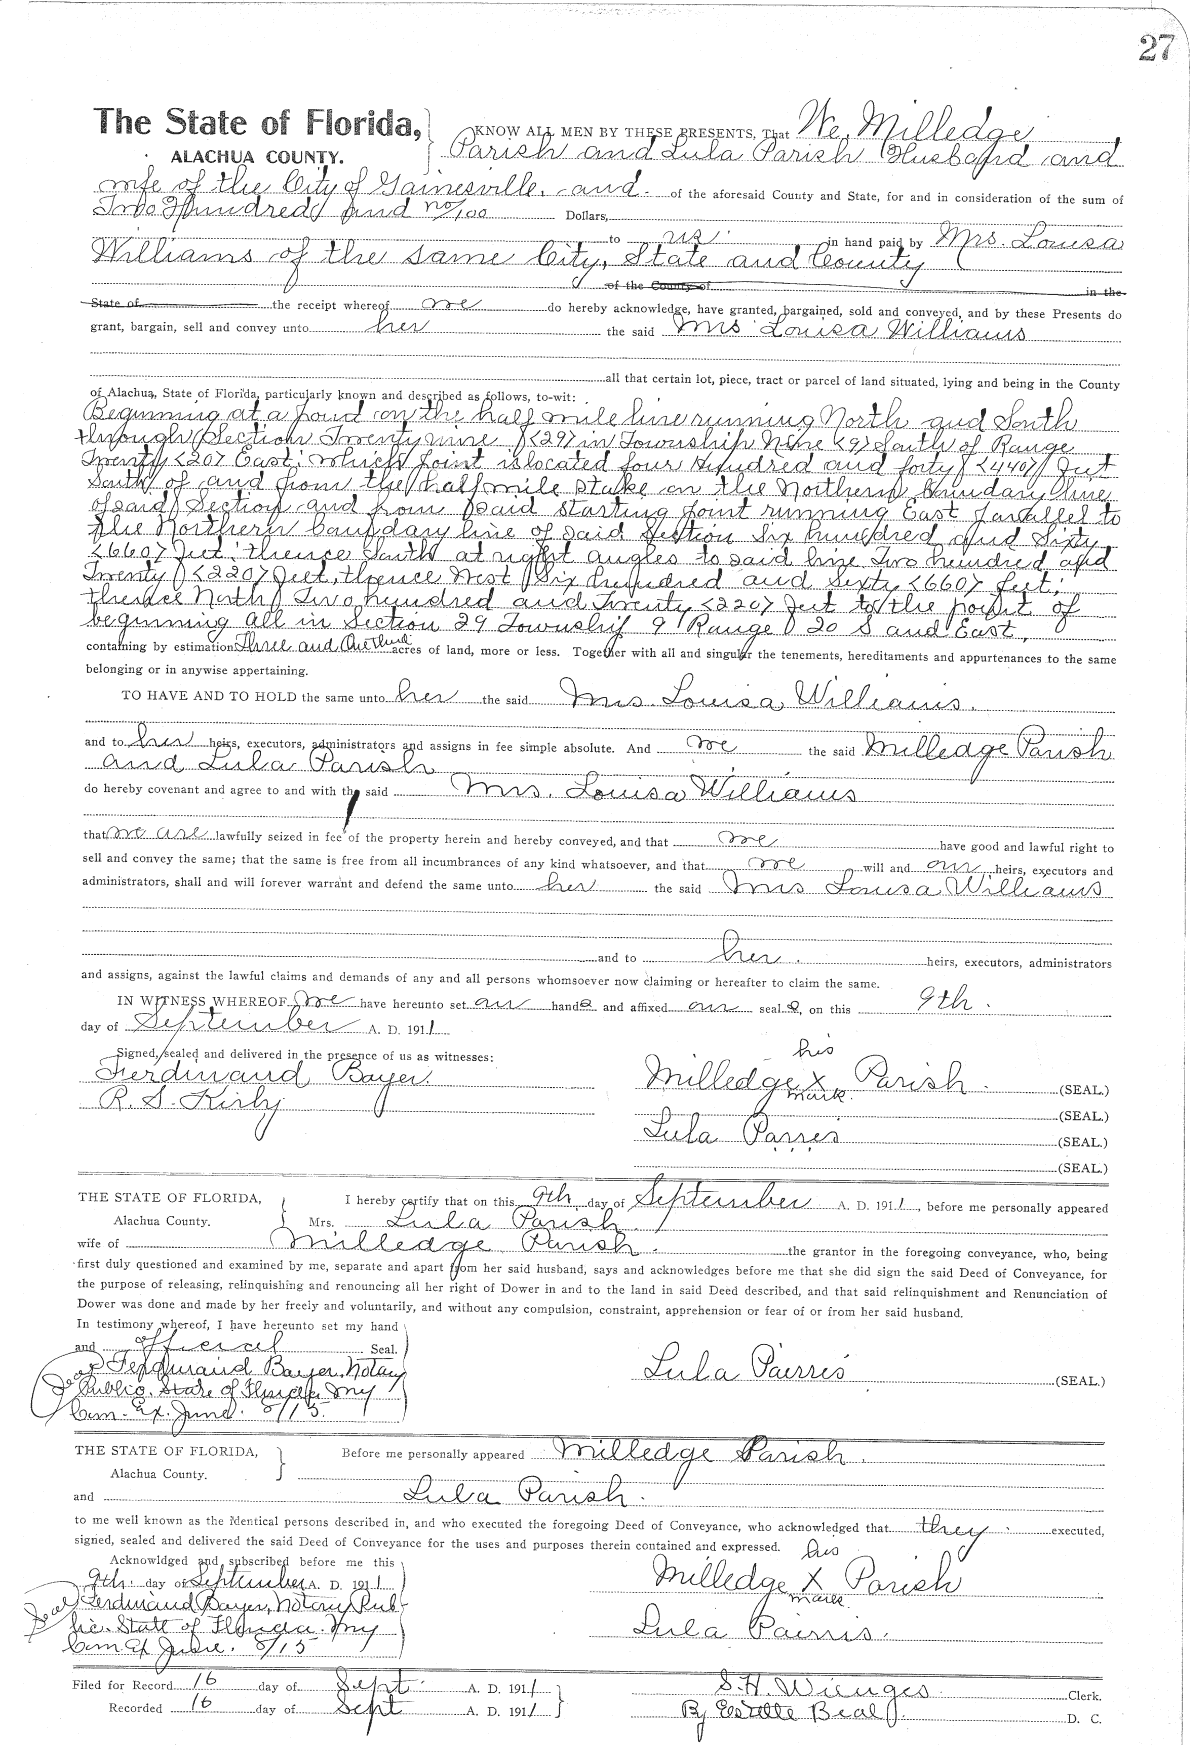 27
The State of Florida,
ALACHUA COUNTY.
KNOW ALL MEN BY THESE PRESENTS, That We, Milledge
Parish and Lula Parish Husband and
wife of the City of Gainesville, and of the aforesaid County and State, for and in consideration of the sum of
Two Hundred and no/100 Dollars,
to us in hand paid by Mrs. Louisa
Williams of the same City, State and County
of the County of in the
State of the receipt whereof we do hereby acknowledge, have granted, bargained, sold and conveyed, and by these Presents do
grant, bargain, sell and convey unto her the said Mrs Louisa Williams
all that certain lot, piece, tract or parcel of land situated, lying and being in the County
of Alachua, State of Florida, particularly known and described as follows, to-wit:
Beginning at a point on the half mile line running North and South
through Section Twenty nine <29> in Township Nine <9> South of Range
Twenty <20> East; which point is located four Hundred and forty <440> feet
South of and from the half mile stake on the Northern Boundary line
of said Section and from said starting point running East parallel to
the Northern boundary line of said Section Six hundred and Sixty
<660> feet; thence South at right angles to said line Two hundred and
Twenty <220> feet, thence West Six hundred and Sixty <660> feet;
thence North Two hundred and Twenty <220> feet to the point of
beginning all in Section 29 Township 9 Range 20 S and East,
containing by estimation Three and One third acres of land, more or less. Together with all and singular the tenements, hereditaments and appurtenances to the same
belonging or in anywise appertaining.
TO HAVE AND TO HOLD the same unto her the said Mrs. Louisa Williams.
and to her heirs, executors, administrators and assigns in fee simple absolute. And we the said Milledge Parish
and Lula Parish
do hereby covenant and agree to and with the said Mrs. Louisa Williams
that we are lawfully seized in fee of the property herein and hereby conveyed, and that we have good and lawful right to
sell and convey the same; that the same is free from all incumbrances of any kind whatsoever, and that we will and our heirs, executors and
administrators, shall and will forever warrant and defend the same unto her the said Mrs Louisa Williams
and to her. heirs, executors, administrators
and assigns, against the lawful claims and demands of any and all persons whomsoever now claiming or hereafter to claim the same.
IN WITNESS WHEREOF, we have hereunto set our hands and affixed our seals, on this 9th.
day of September A. D. 1911
Signed, sealed and delivered in the presence of us as witnesses:
Ferdinand Bayer.
R. S. Kirby
his
Milledge X Parish. (SEAL.)
mark.
(SEAL.)
Lula Parris (SEAL.)
(SEAL.)
THE STATE OF FLORIDA,
Alachua County.
I hereby certify that on this 9th day of September A. D. 1911, before me personally appeared
Mrs. Lula Parish
wife of Milledge Parish. the grantor in the foregoing conveyance, who, being
first duly questioned and examined by me, separate and apart from her said husband, says and acknowledges before me that she did sign the said Deed of Conveyance, for
the purpose of releasing, relinquishing and renouncing all her right of Dower in and to the land in said Deed described, and that said relinquishment and Renunciation of
Dower was done and made by her freely and voluntarily, and without any compulsion, constraint, apprehension or fear of or from her said husband.
In testimony whereof, I have hereunto set my hand
and official Seal.
Seal Ferdinand Bayer, Notary
Public. State of Florida. My
Com. Ex. June. 8/15.
Lula Pairris (SEAL.)
THE STATE OF FLORIDA,
Alachua County.
Before me personally appeared Milledge Parish.
and Lula Parish.
to me well known as the identical persons described in, and who executed the foregoing Deed of Conveyance, who acknowledged that they executed,
signed, sealed and delivered the said Deed of Conveyance for the uses and purposes therein contained and expressed.
Acknowldged and subscribed before me this
9th. day of September A. D. 1911
Seal Ferdinand Bayer, Notary Pub-
lic. State of Florida. My
Com Ex June. 8/15
his
Milledge X Parish
mark
Lula Pairris.
Filed for Record 16 day of Sept. A. D. 1911
Recorded 16 day of Sept A. D. 1911
S. H. Wienges. Clerk.
By Estelle Beal D. C.